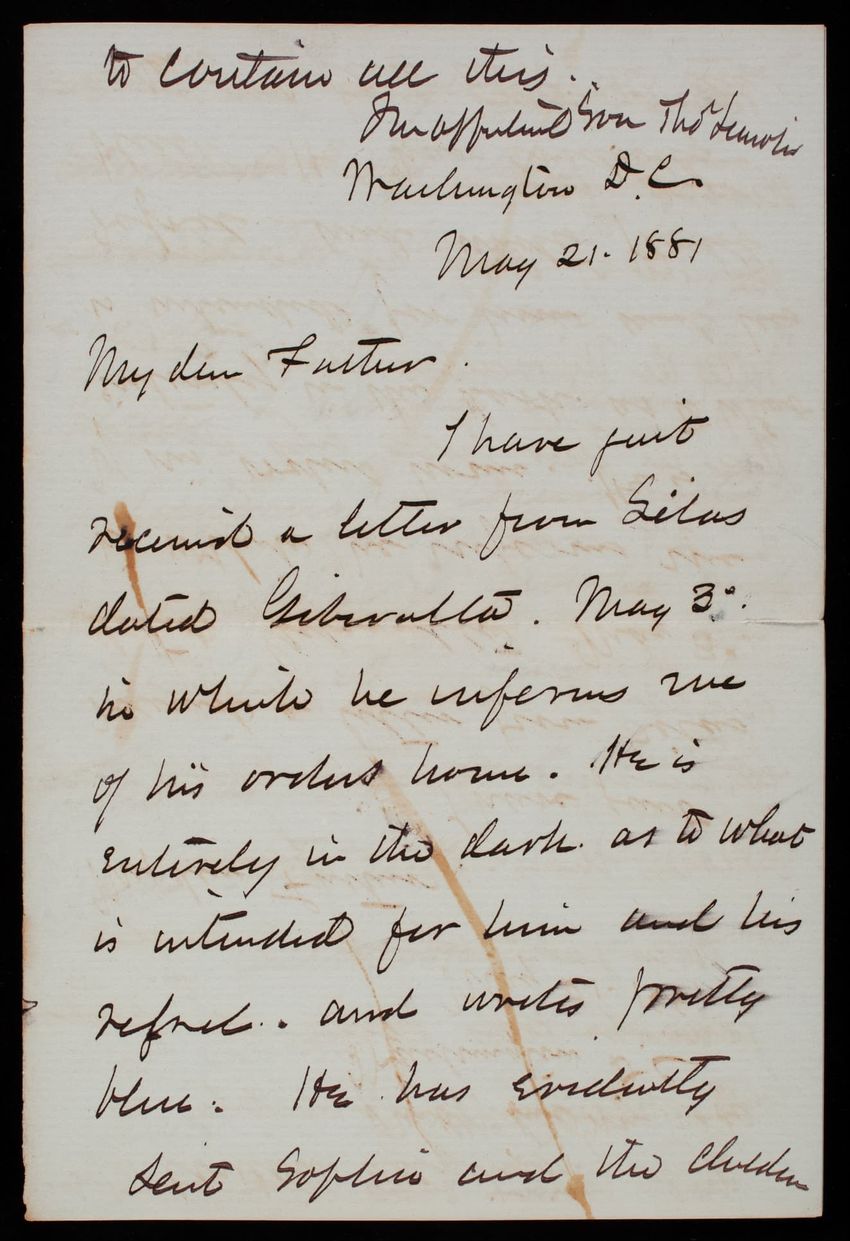 to contain all this.
Your affectionate Son Thos Lincoln
Washington D.C.
May 21. 1881
My dear Father.
I have just
received a letter from Silas
dated Gibralta. May 3d.
in which he informs me
of his orders home. He is
entirely in the dark. as to what
is intended for him and his
. and writes pretty
blue. He has evidently
sent Sophie and the children